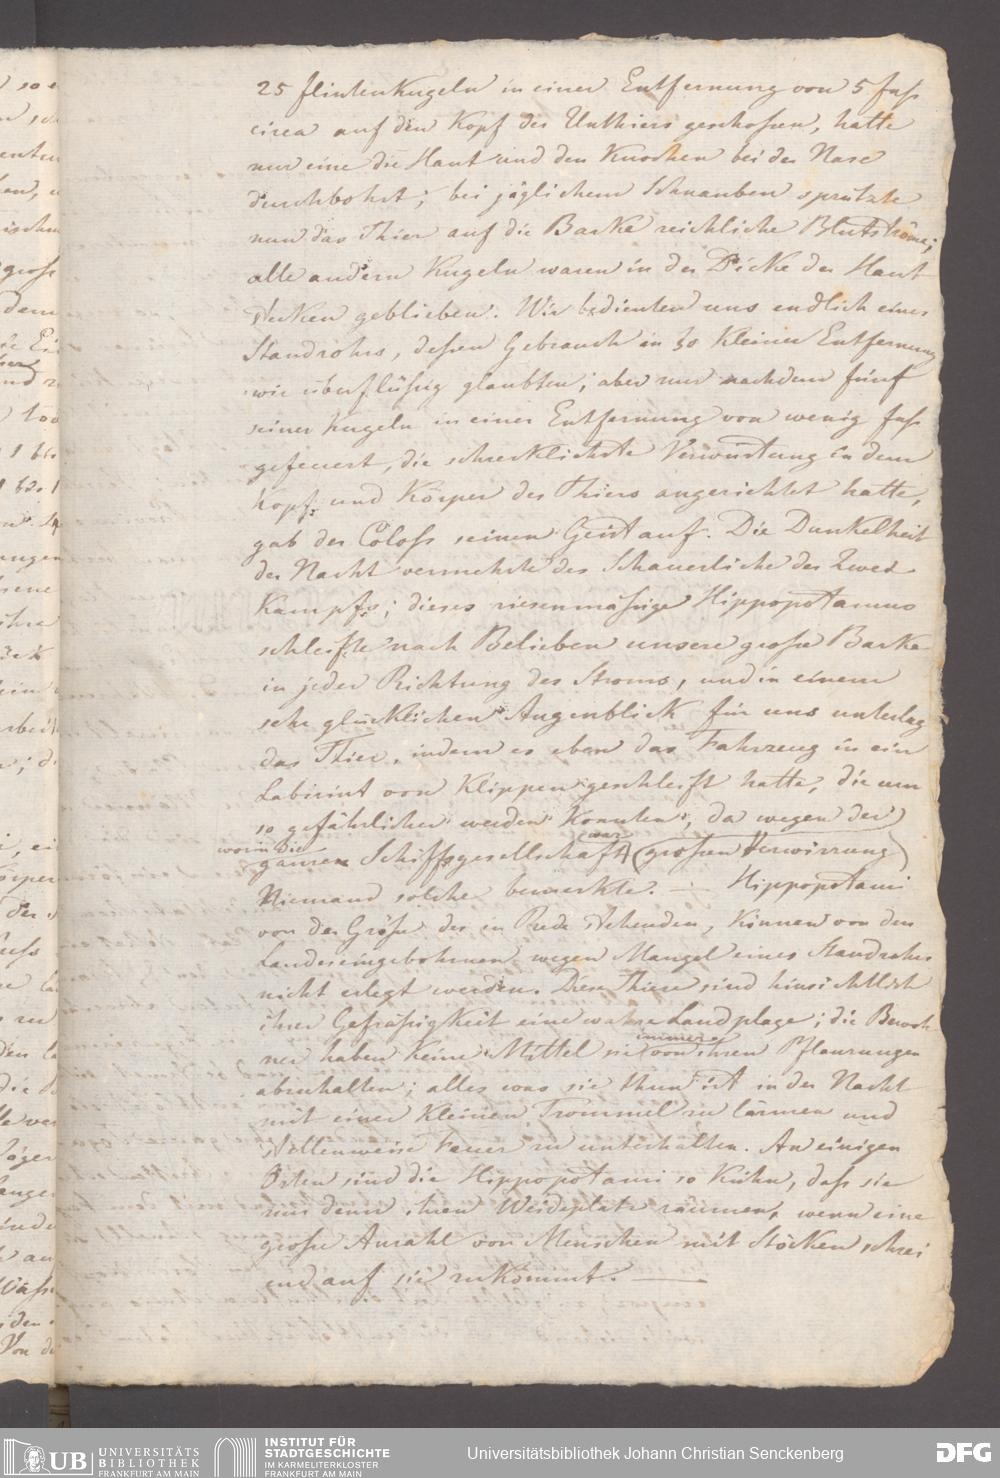 25 flintenkugeln in einer Entfernung von 5 fuß
circa auf den Kopf des Unthiers geschoßen, hatte
nur eine die Haut und den Knochen bei der Nase
durchbohrt; bei jäglichem Schnauben sprützte
nun das Thier auf die Barke reichliche Blutströme;
alle andern Kugeln waren in der Dicke der Haut
stecken geblieben. Wir bedienten uns endlich eines
Standrohrs, deßen Gebrauch in so kleiner Entfernung
wir überflüßig glaubten; aber nur nachdem fünf
seiner Kugeln in einer Entfernung von wenig fuß
gefeuert, die schrecklichste Verwüstung in dem
Kopf und Körper des Thiers angerichtet hatte,
gab der Coloß seinen Geist auf. Die Dunkelheit
der Nacht vermehrte das Schauerliche des Zwei
Kampfs; dieses riesenmäßige Hippopotamus
schleifte nach Belieben unsere große Barke
in jeder Richtung des Stroms, und in einem
sehr glücklichen Augenblick für uns unterlag
das Thier, indem es eben das Fahrzeug in ein
Labirint von Klippen geschleift hatte, die um
so gefährlicher werden konnten, da wegen der
worin die war
ganze Schiffsgesellschaft (großen Verwirrung)
Niemand solche bemerkte. — Hippopotami
von der Größe des in Rede stehenden, können von den
Landeseingebohrnen wegen Mangel eines Standrohrs
nicht erlegt werden. Diese Thiere sind hinsichtlich
ihrer Gefräßigkeit eine wahre Landplage; die Bewoh
immer
ner haben keine Mittel sie von ihren Pflanzungen
abzuhalten; alles was sie thun ist in der Nacht
mit einer kleinen Trommel zu lärmen und
stellenweise Feuer zu unterhalten. An einigen
Orten sind die Hippopotami so kühn, daß sie
nur dann ihren Weideplatz räumen, wenn eine
große Anzahl von Menschen mit Stöcken schrei
end auf sie zukömmt. —
UB UNIVERSITÄTS
BIBLIOTHEK
FRANKFURT AM MAIN
INSTITUT FÜR
STADTGESCHICHTE
IM KARMELITERKLOSTER
FRANKFURT AM MAIN
Universitätsbibliothek Johann Christian Senckenberg
DFG